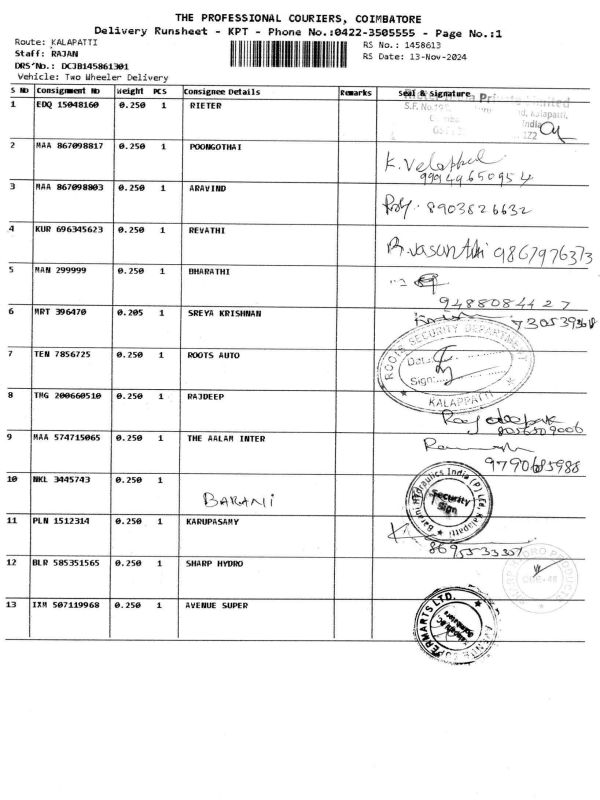 THE PROFESSIONAL COURIERS, COIMBATORE
Delivery Runsheet - KPT - Phone No.:0422-3505555 - Page No.:1
Route: KALAPATTI
RS No.: 1458613
Staff: RAJAN
RS Date: 13-Nov-2024
DRS No.: DCJB145861301
Vehicle: Two Wheeler Delivery
S No Consignment No Weight PCS Consignee Details Remarks Seal & Signature
1 EDQ 15048160 0.250 1 RIETER
Private Limited
S.F. No.
India
2 MAA 867098817 0.250 1 POONGOTHAI
K. Velappal
9994965095 4
3 MAA 867098803 0.250 1 ARAVIND
8903826632
4 KUR 696345623 0.250 1 REVATHI
R.Vasunthi 9867976373
5 MAN 299999 0.250 1 BHARATHI
9488084427
6 MRT 396470 0.205 1 SREYA KRISHNAN
7 TEN 7856725 0.250 1 ROOTS AUTO
ROOTS SECURITY DEPARTMENT
Date:
Sign:
KALAPPATTI
8 TMG 200660510 0.250 1 RAJDEEP
Raj deepak
9 MAA 574715065 0.250 1 THE AALAM INTER
9790685988
10 NKL 3445743 0.250 1
BARANI
Barani Hydraulics India (P) Ltd, Kalapatti
Security
Sign
11 PLN 1512314 0.250 1 KARUPASAMY
12 BLR 585351565 0.250 1 SHARP HYDRO
SHARP HYDRO PRODUCTS
CBE-48
13 IXM 507119968 0.250 1 AVENUE SUPER
AVENUE SUPERMARTS LTD.